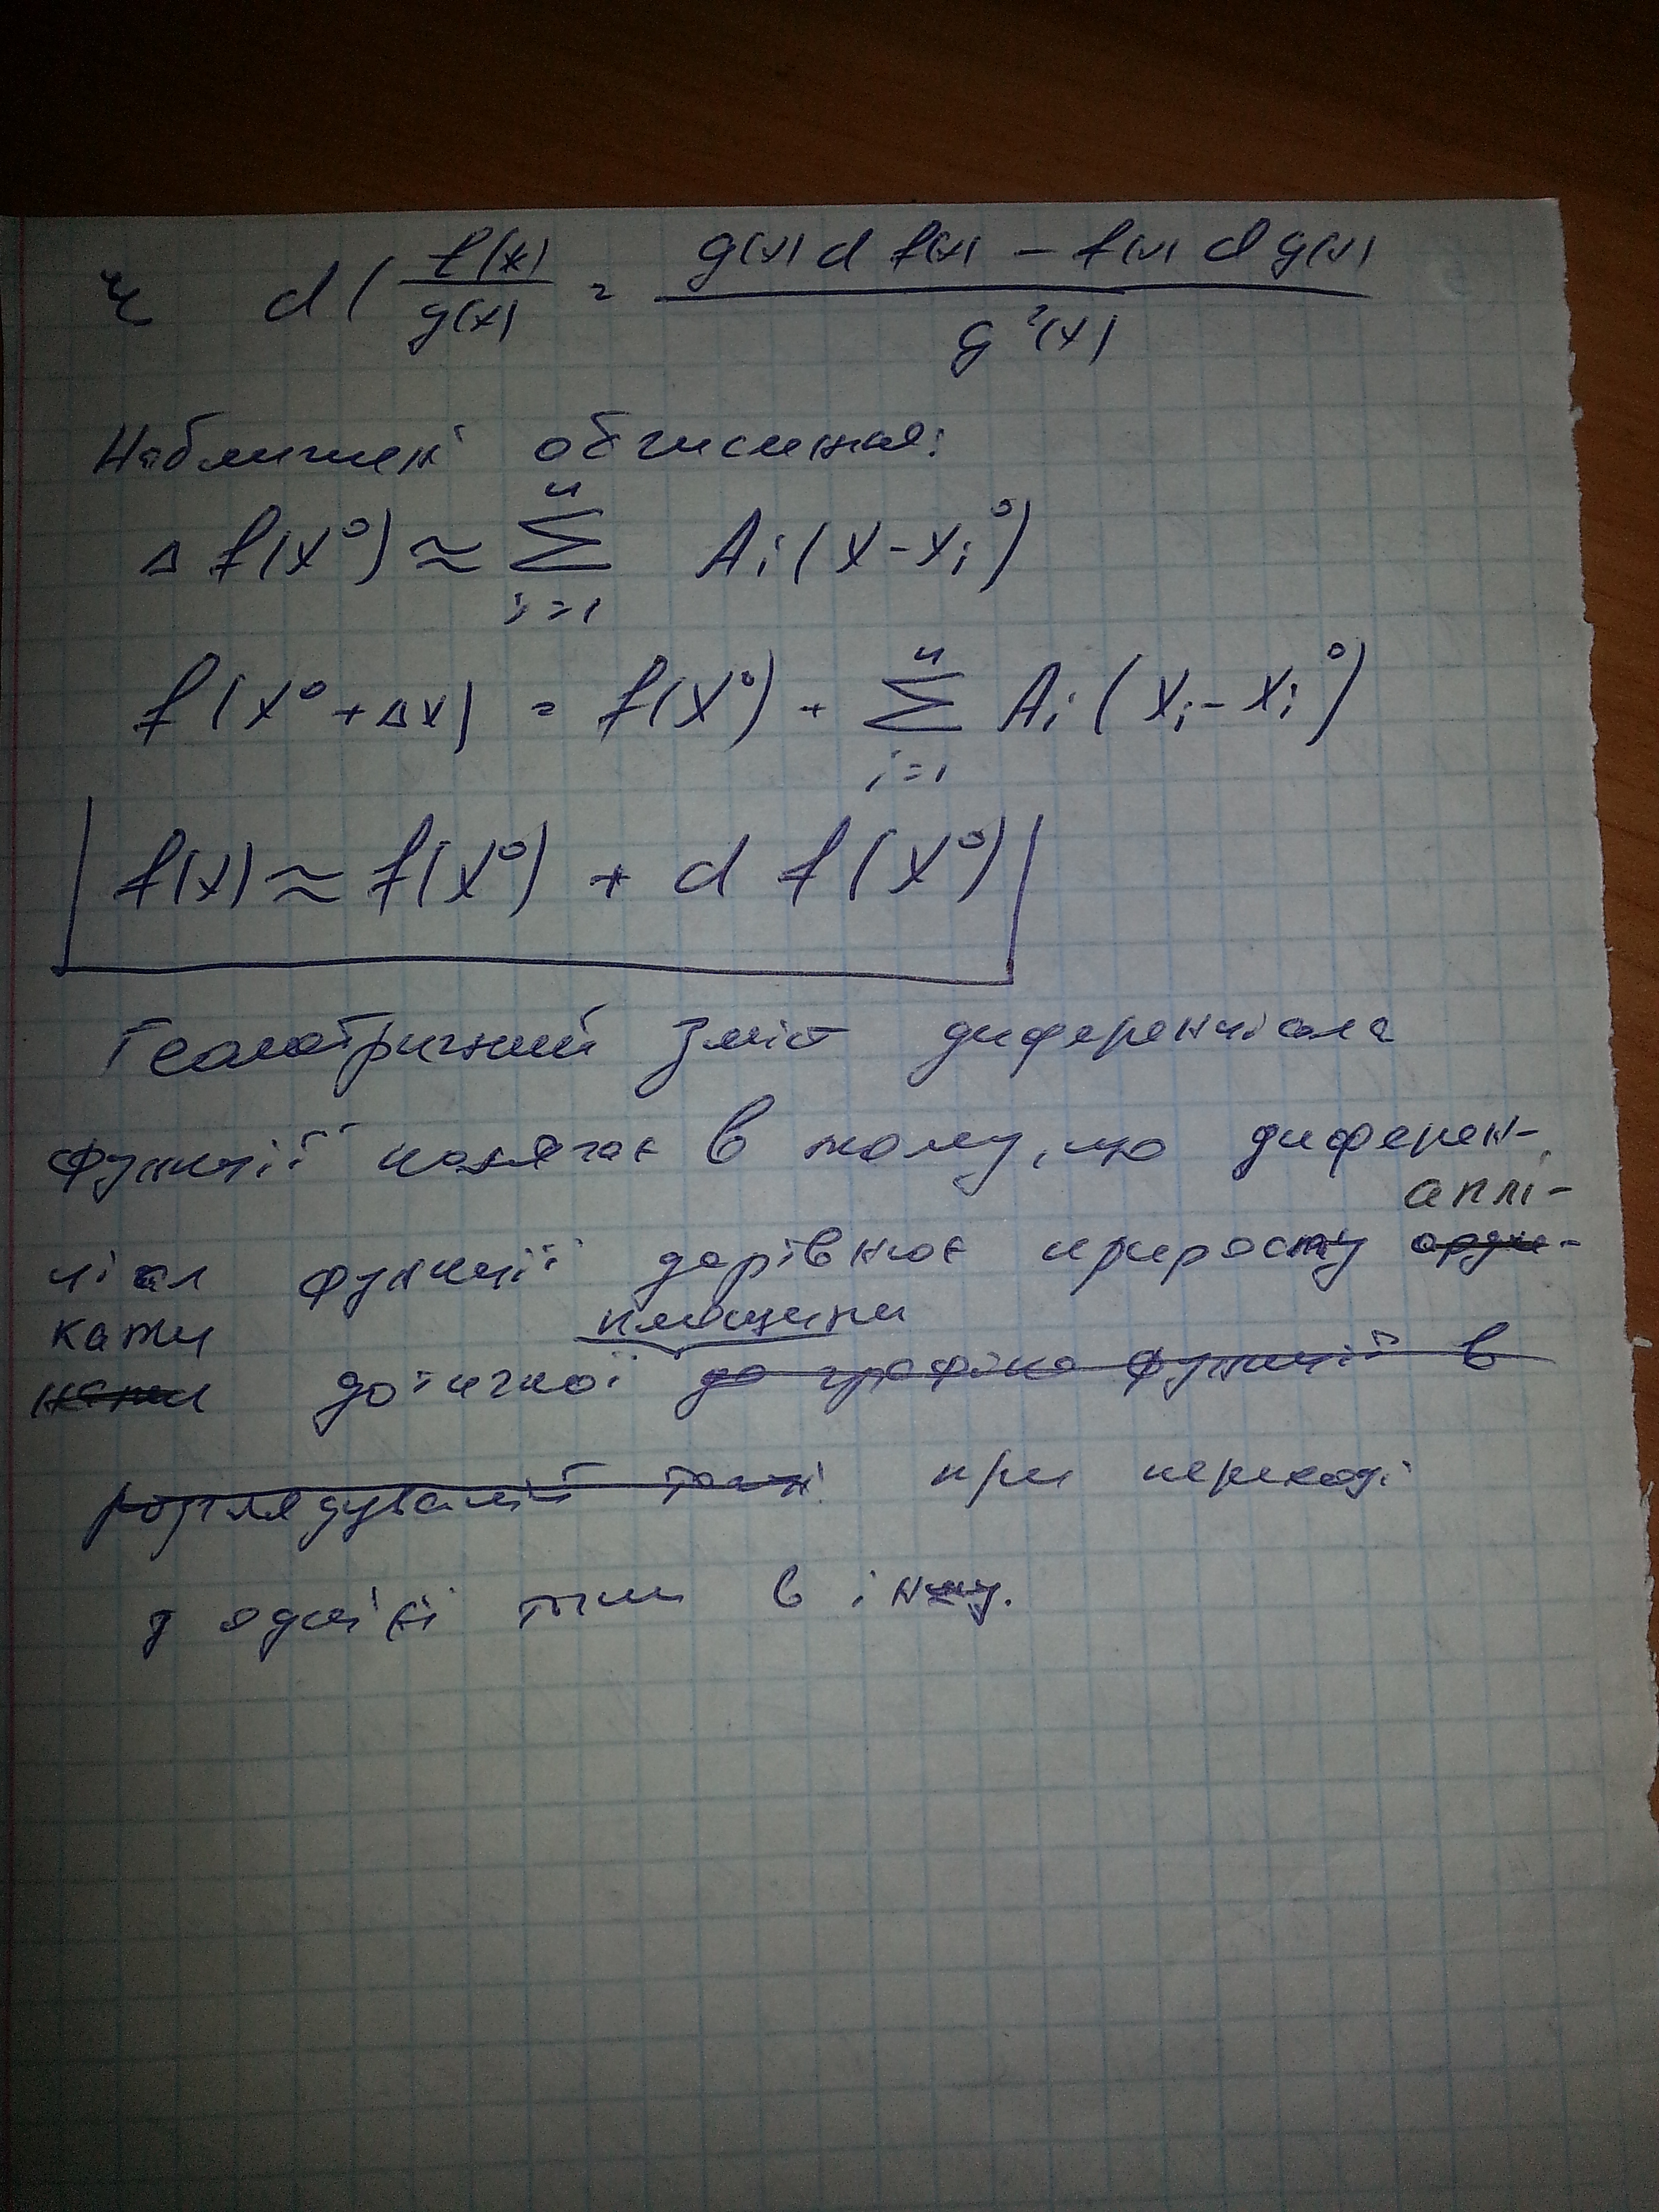 4 d(f(x)/g(x) = (g(x) d f(x) - f(x) d g(x))/g²(x)
Наближені обчислення:
Δ f(x⁰) ≈ ∑ⁿᵢ₌₁ Aᵢ(x-xᵢ⁰)
f(x⁰+Δx) = f(x⁰) + ∑ⁿᵢ₌₁ Aᵢ(xᵢ-xᵢ⁰)
f(x) ≈ f(x⁰) + d f(x⁰)
Геометричний зміст диференціала
функції полягає в тому, що диферен-
аплі-
ціал функції дорівнює приросту орди-
кати площини
нати дотичної до графіка функції в
розглядуваній точці при переході
з однієї точки в іншу.